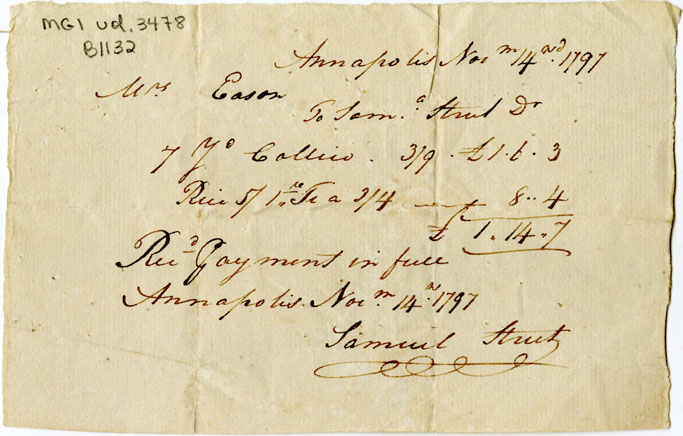 MG1 vol. 3478
B1132
Annapolis Nov.m 14nd 1797
Mrs Eason
To Sam.a Street Dr
7 Yd Callico . 3/9 . £1. 6. 3
Rice 5/ Tea 3/4 8.. 4
£ 1. 14. 7
Recd Payment in full
Annapolis. Nov.m 14 1797
Samuel Street